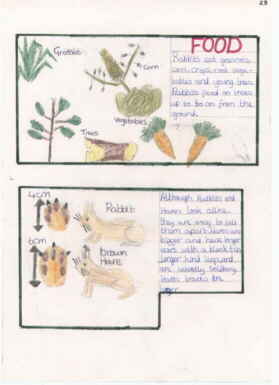 23
FOOD
Grasses
Corn
Rabbits eat grasses
corn crops root vege-
tables and young trees
Rabbits feed on trees
up to 50 cm from the
ground.
Vegetables
Trees
4cm
Rabbit
6cm
Brown
Hares
Although Rabbits and
Hares look alike
they are easy to tell
them apart. Hares are
bigger and have larger
ears with a black tip
longer hind legs and
are usually solitary